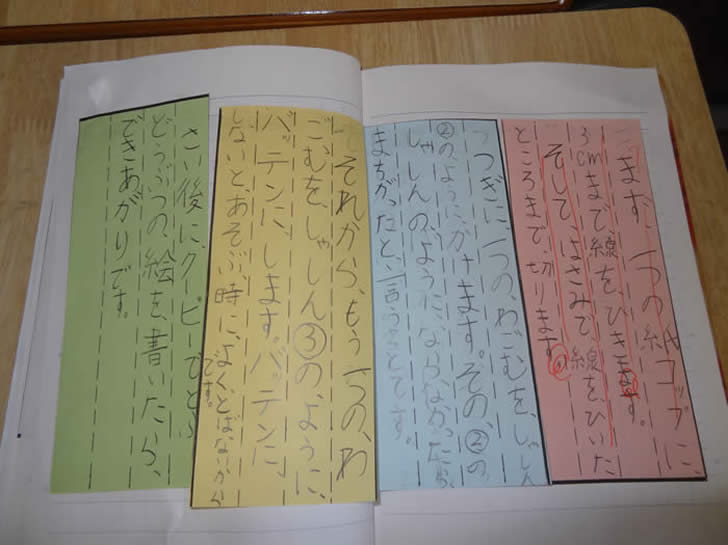 まず、一つの紙コップに、
3cmまで、線を、ひきます。
そして、はさみで、線を、ひいた
ところまで、切ります。
つぎに、一つの、わごむを、しゃしん
②の、ように、かけます。その、②の
しゃしんの、ように、ならなかったら、
まちがったと、言うことです。
それから、もう一つの、わ
ごむを、しゃしん③の、ように、
バッテンに、します。バッテンに、
しないと、あそぶ、時に、よく、とばないから
です。
さい後に、クーピーで
どうぶつの、絵を、書いたら、
できあがりです。